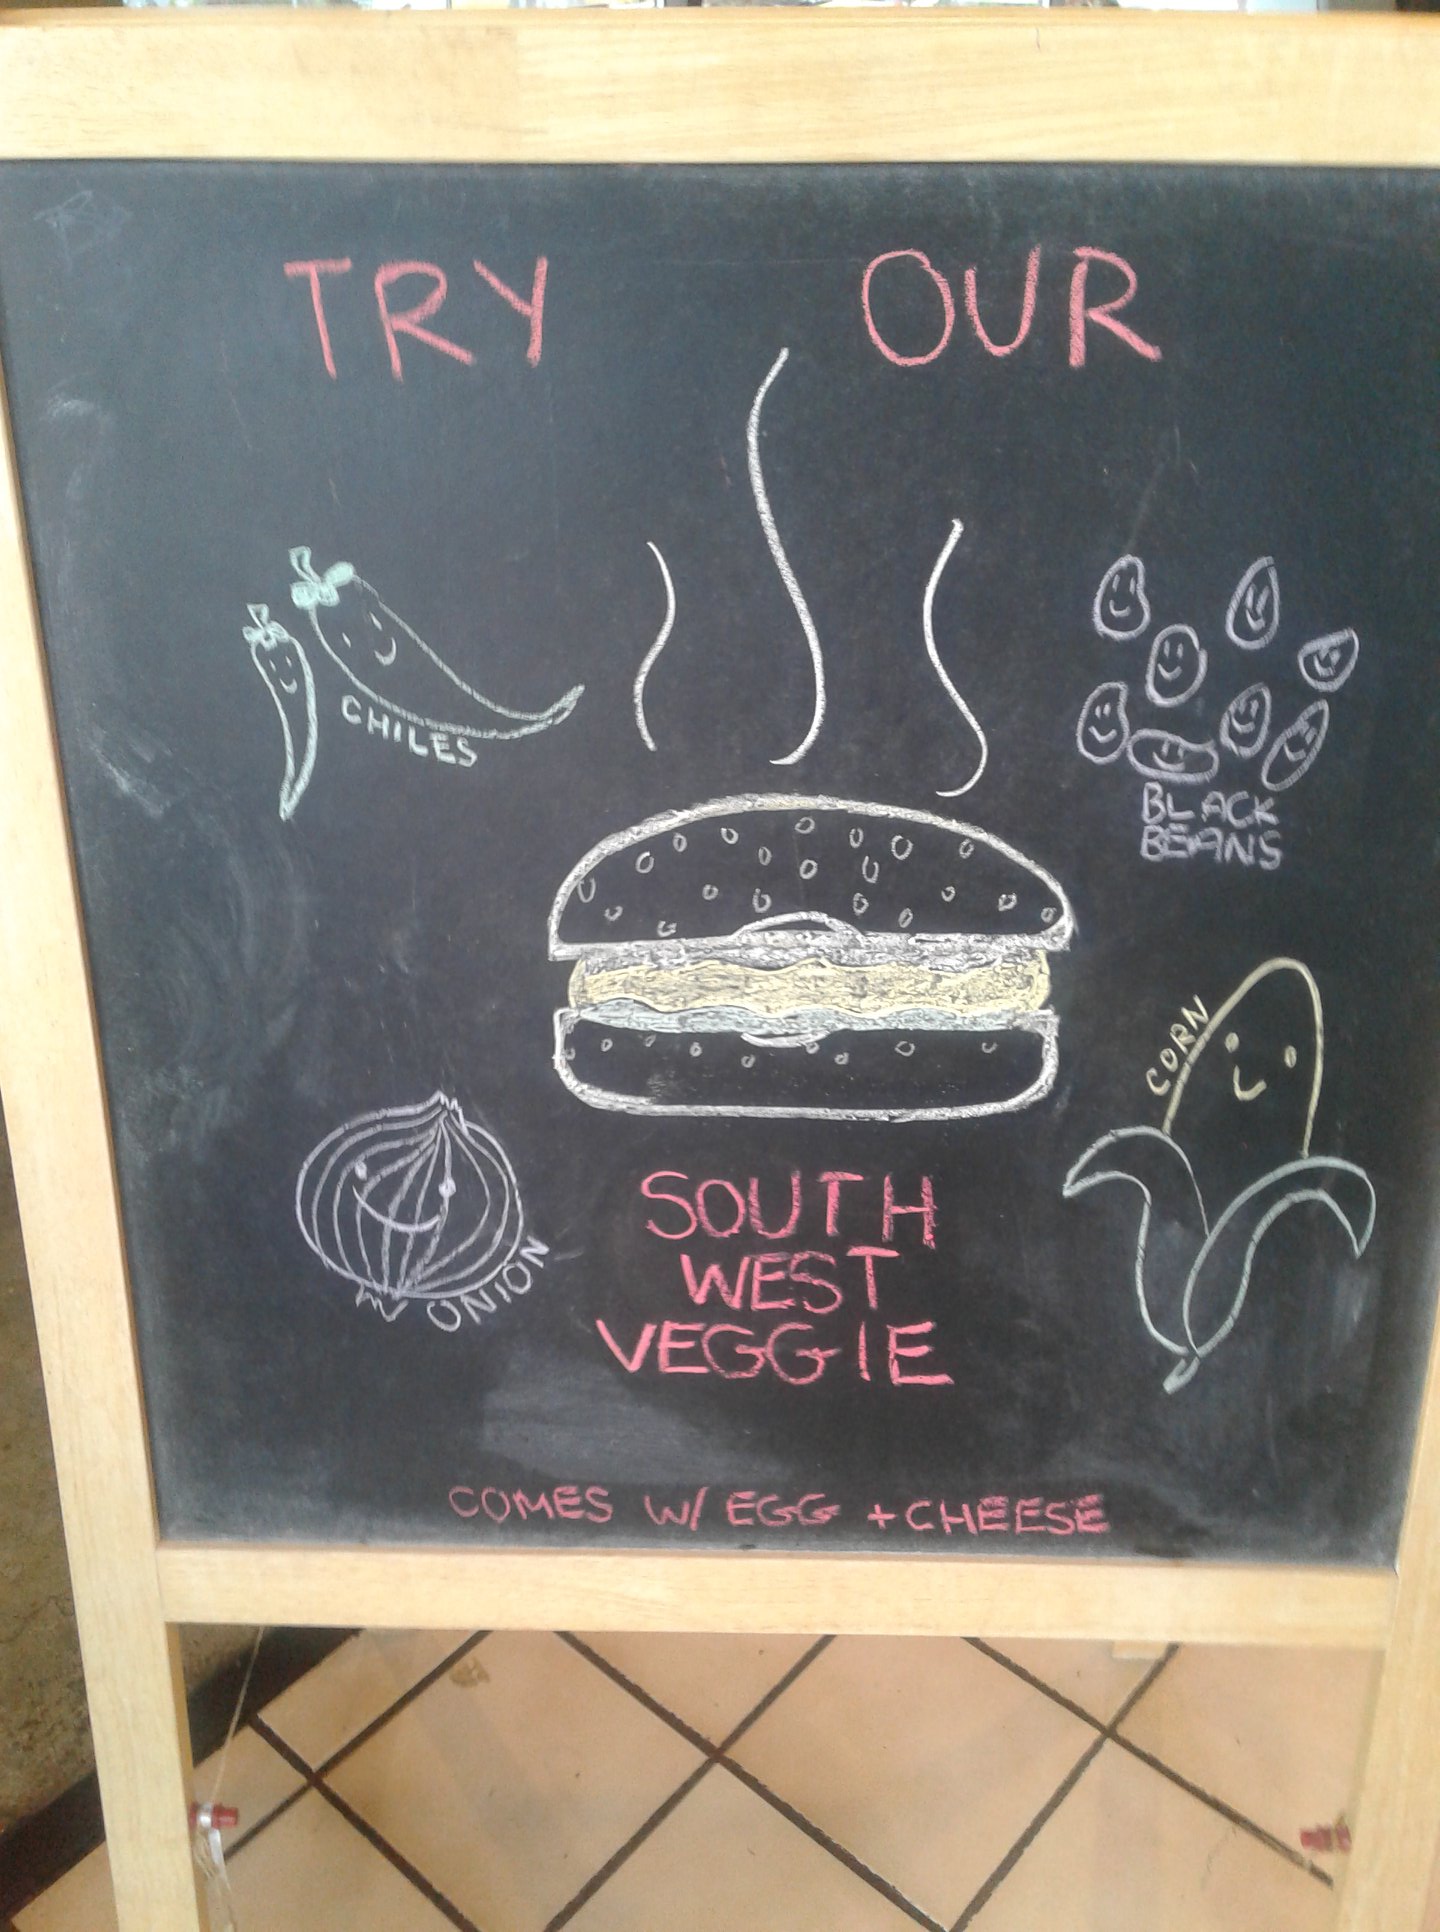 TRY OUR
CHILES
BLACK
BEANS
CORN
ONION
SOUTH
WEST
VEGGIE
COMES W/ EGG + CHEESE